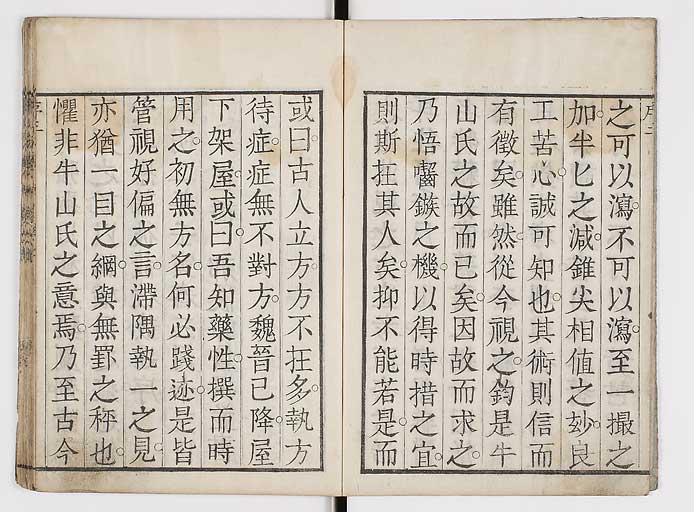 序二
之可以瀉不可以瀉至一撮之
加半匕之減錐尖相值之玅良
工苦心誠可知也其術則信而
有徵矣雖然從今視之鈞是牛
山氏之故而已矣因故而求之
乃悟囓鏃之機以得時措之宜
則斯在其人矣抑不能若是而
或曰古人立方方不在多執方
待症症無不對方魏晉已降屋
下架屋或曰吾知藥性撰而時
用之初無方名何必踐迹是皆
管視好偏之言滯隅執一之見
亦猶一目之綱與無罫之秤也
懼非牛山氏之意焉乃至古今
序三